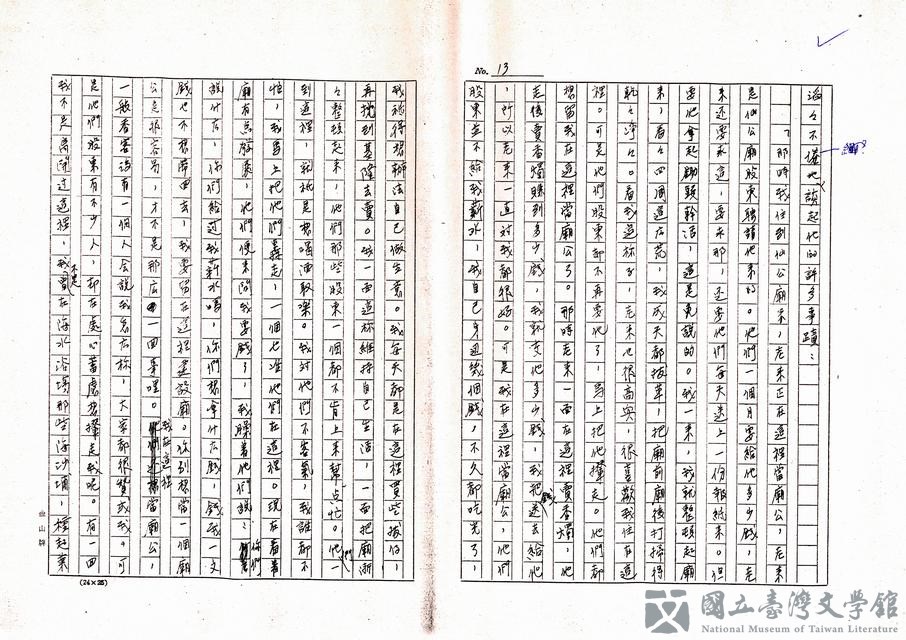 No. 13
滔々不倦地談起他的許多事蹟：
「那時我住到仙公廟來，老朱正在這裡當廟公，老朱
是仙公廟股東聘請他來的。他們一個月要給他多少錢，老
朱還要米這，要米那，還要他們每天送上一份報紙來。但
要他拿起鋤頭幹活，這是免說的。我一來，我就整頓起廟
來，看々四周這広荒，我成天都拔草，把廟前廟後打掃得
乾々淨々。看我這樣子，老朱也很高興，很喜歡我住在這
裡。可是他們股東都不再要他了，馬上把他攆走。他們都
想留我在這裡當廟公了。那時老朱一面在這裡賣香燭，他
走後賣香燭賺到多少錢，我就交他多少錢，我把錢送去給他
，所以老朱一直對我都很好。可是我在這裡當廟公，他們
股東並不給我薪水，我自己身邊幾個錢，不久都吃光了，
我祇得想辦法自己做生意。我每天都是在這裡買些拔仔，
再挑到基隆去賣。我一面這樣維持自己生活，一面把廟漸
々整頓起來，他們那些股東一個都不肯上來幫点忙。他們一
到這裡，就祇是想喝酒取樂。我對他們不客氣，我誰都不
怕，我馬上把他們轟走，一個也不准他們在這裡。現在看著
廟有点錢來，他們便來問我要錢了，我瞪着他們説：你們
説什広，你們給過我薪水嗎，你們想拿什広錢，錢我一文
錢也不想帶回去，我要留在這裡建設廟。你別想當一個廟
公是很容易，才不是那広一回事哩。我在這裡當廟公，
一般香客沒有一個人會説我怎広樣，大家都很贊成我。可
是他們股東有不少人，都在處心蓄慮想攆走我呢。有一回
我不是離開過這裡，我不是曾在海水浴場那些海沙埔，搭起草
金山牌
(24×25)
國立臺灣文學館
National Museum of Taiwan Literature